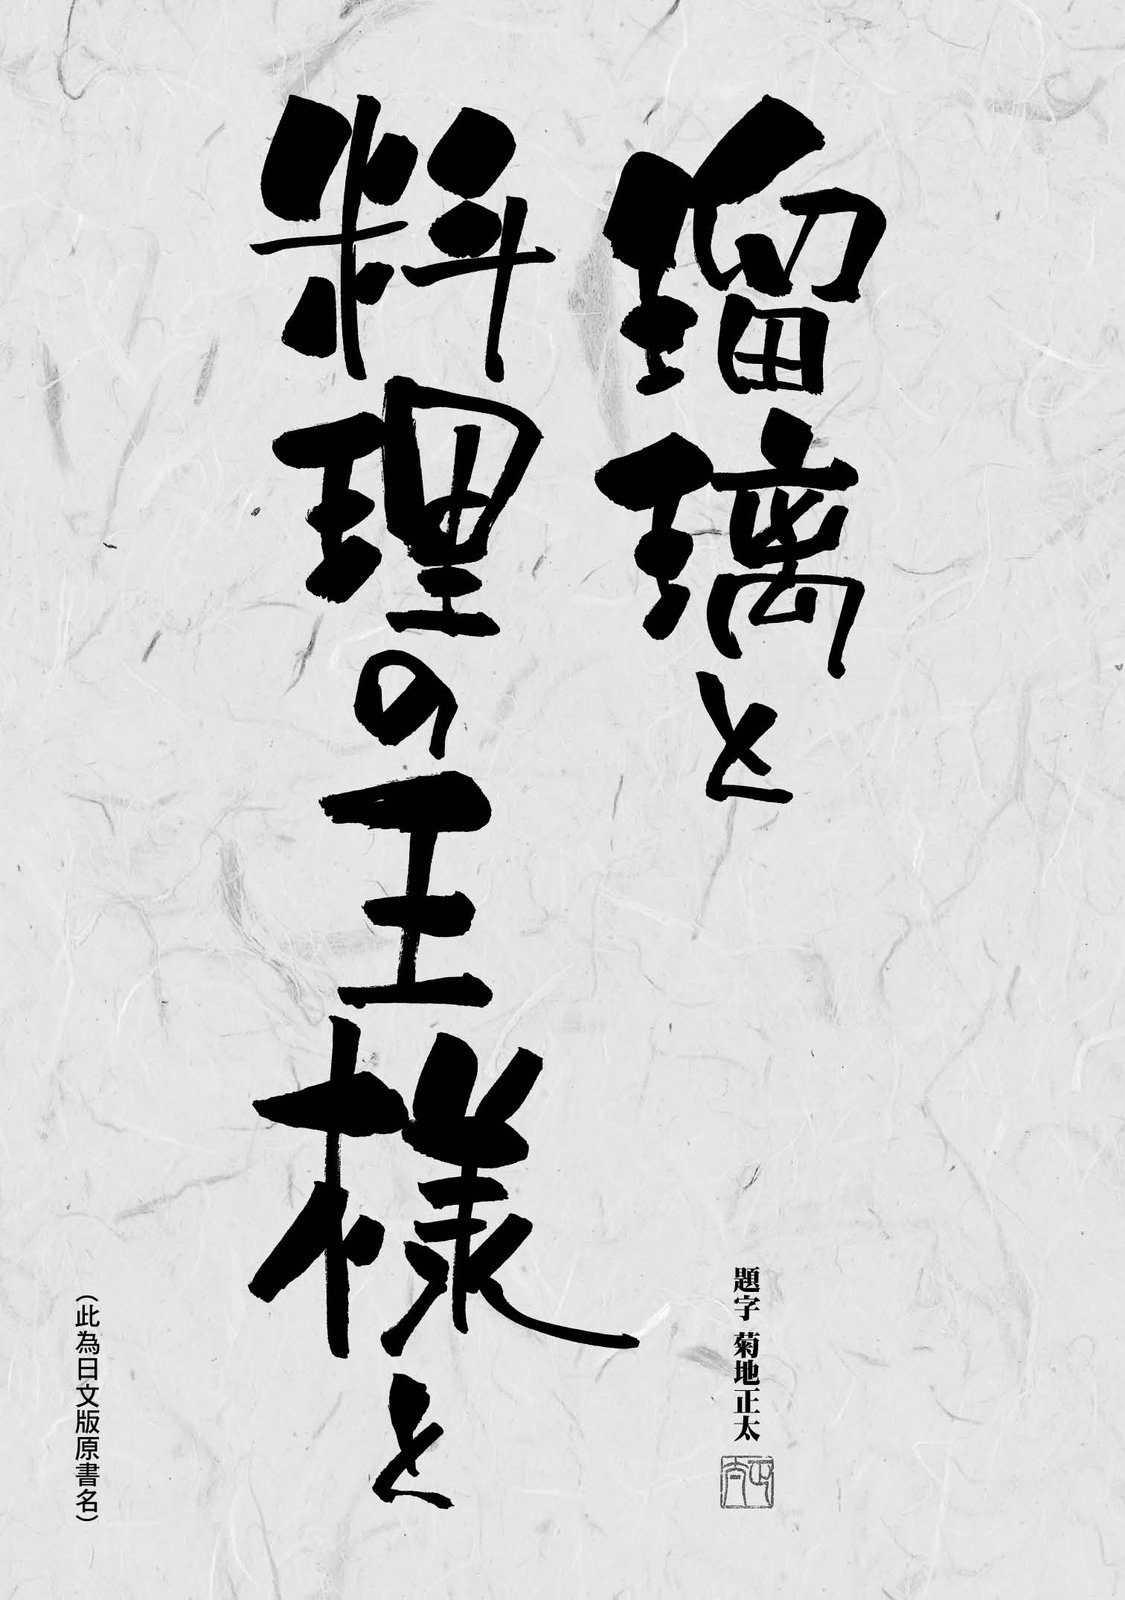 瑠璃と
料理の王様と
題字 菊地正太
正太
(此為日文版原書名)